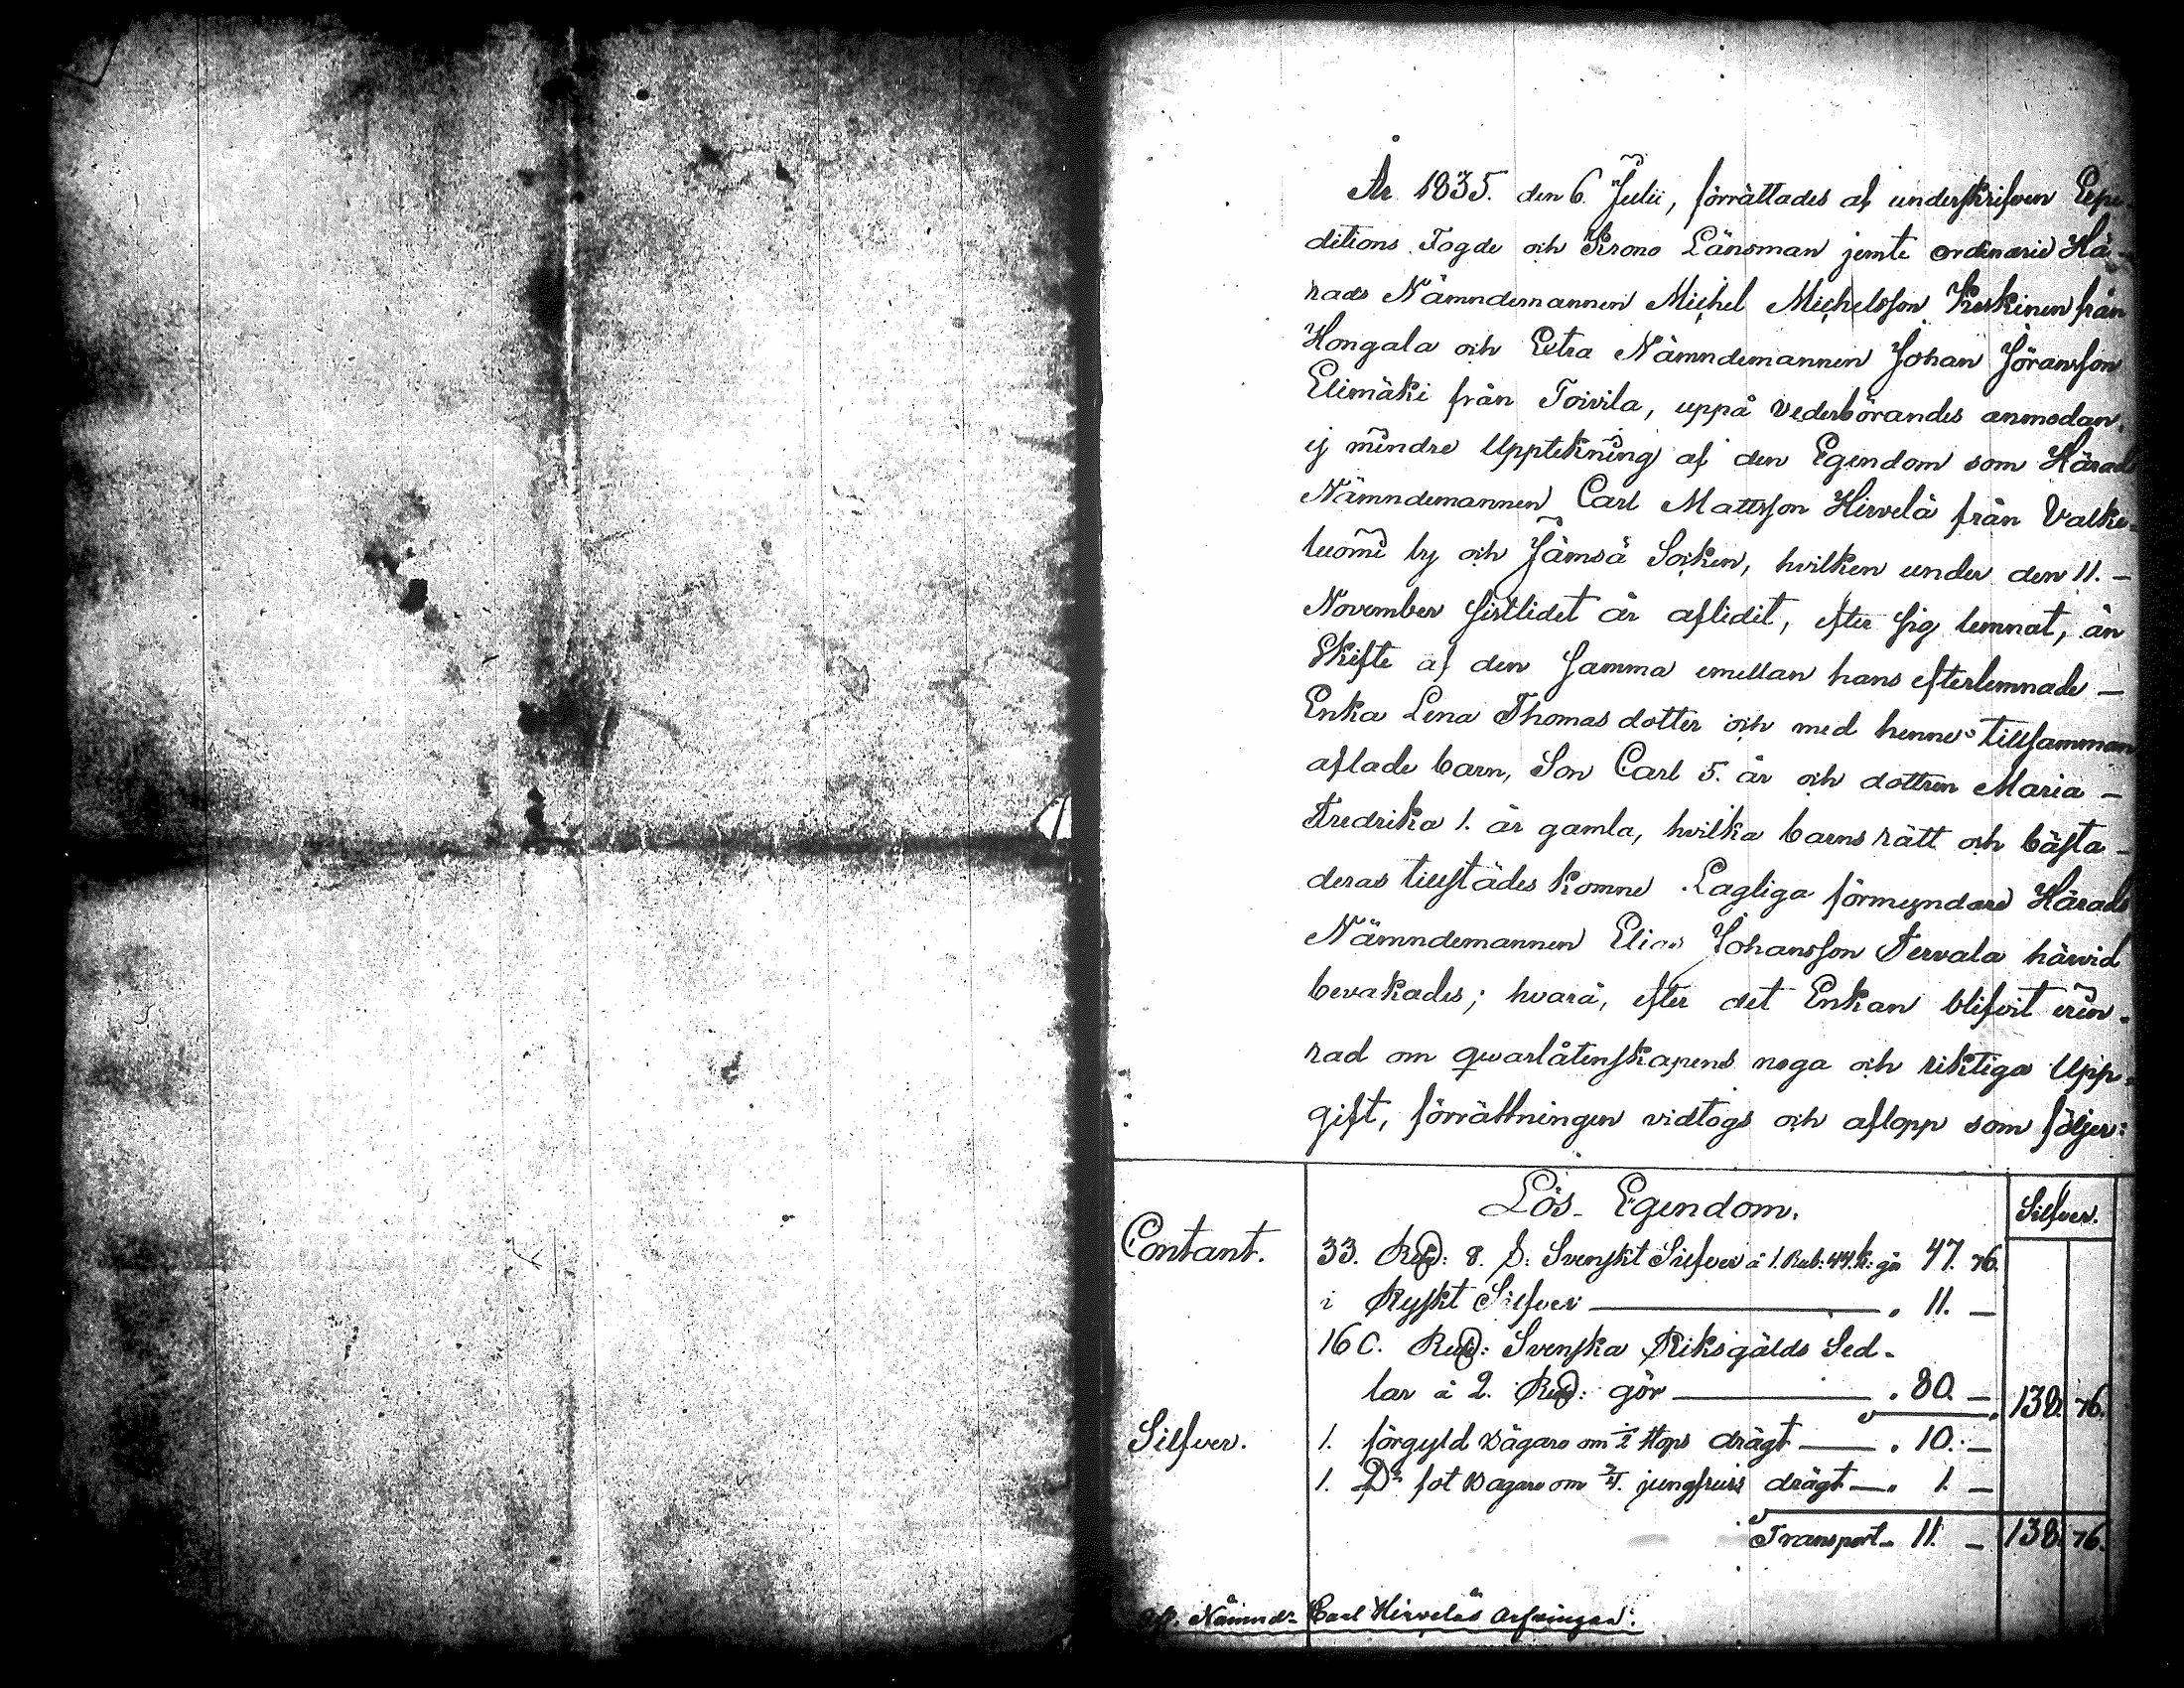 År 1835. den 6. Julii, förrättades af underskrifven Expe-
ditions Fogde och Krono Länsman jemte ordinarie Hä-
rads Nämndemannen Michel Michelsson Keskinen från
Hongala och Extra Nämndemannen Johan Jöransson
Elimäki från Toivila, uppå vederbörandes anmodan,
ej mindre Upptekning af den Egendom som Härads
Nämndemannen Carl Mattsson Hirvelä från Valke-
luomi by och Jämsä Socken, hvilken under den 11. -
November sistlidet år aflidit, efter sig lemnat, än
Skifte af den samma emellan hans efterlemnade -
Enka Lena Thomas dotter och med henne tillsamman
aflade barn, Son Carl 5. år och dottren Maria -
Fredrika 1. år gamla, hvilka barns rätt och bästa -
deras tillstädes komne Lagliga förmyndare Härads
Nämndemannen Elias Johansson Tervala härvid
bevakades; hvarå, efter det Enkan blifvit erin-
rad om qvarlåtenskapens noga och riktiga Upp-
gift, förrättningen vidtogs och aflopp som följer:
Lös Egendom. Silfver.
Contant. 33. Rd: 8. s: Svenskt Silfver à 1. Rub: 44. k: gör 47. 76.
i Ryskt Silfver — " 11. —
160. Rd: Svenska Riksgälds Sed-
lar à 2. Rd: gör — " 80. — 138. 76.
Silfver. 1. förgyld Bägare om ½ stops drägt — " 10. —
1. Do fot Bagare om ¾. jungfrurs drägt — " 1. —
Transport 11. — 138. 76.
Nämnd: Carl Hirveläs Arfvingar: